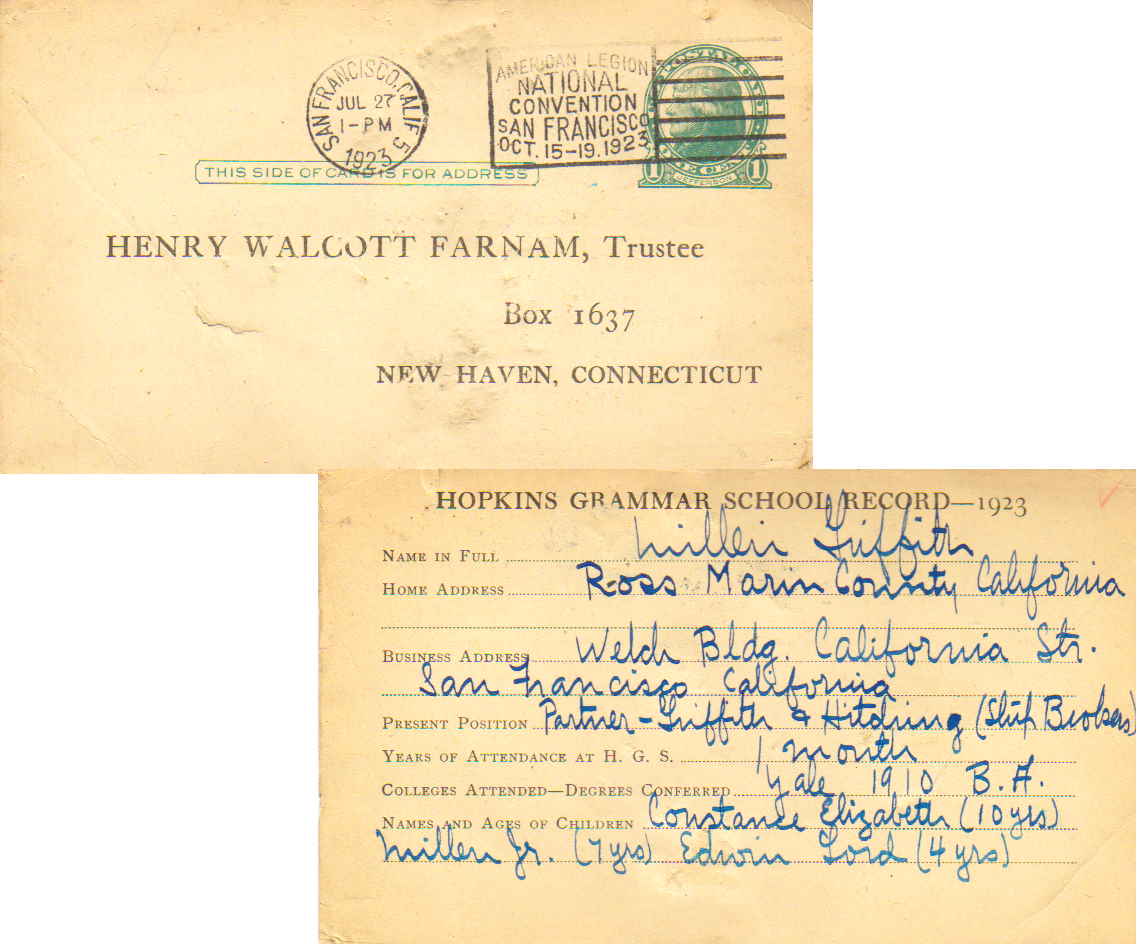 SAN FRANCISCO, CALIF. 5
JUL 27
1-PM
1923
AMERICAN LEGION
NATIONAL
CONVENTION
SAN FRANCISCO
OCT. 15-19. 1923
1 JEFFERSON 1
THIS SIDE OF CARD IS FOR ADDRESS
HENRY WALCOTT FARNAM, Trustee
Box 1637
NEW HAVEN, CONNECTICUT
HOPKINS GRAMMAR SCHOOL RECORD—1923
NAME IN FULL Millen Griffith
HOME ADDRESS Ross Marin County California
BUSINESS ADDRESS Welch Bldg. California Str.
San Francisco California
PRESENT POSITION Partner - Griffith & Hitching (Ship Brokers)
YEARS OF ATTENDANCE AT H. G. S. 1 month
COLLEGES ATTENDED—DEGREES CONFERRED Yale 1910 B.A.
NAMES AND AGES OF CHILDREN Constance Elizabeth (10 yrs)
Millen Jr. (7 yrs) Edwin Lord (4 yrs)